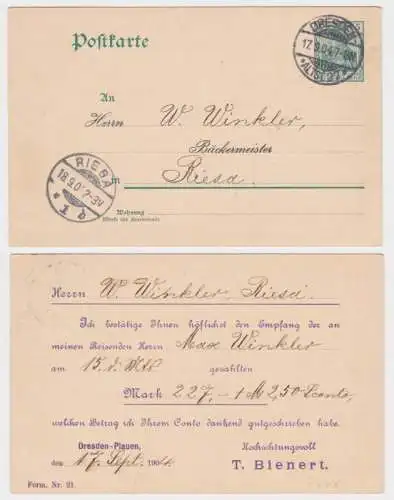 Postkarte
DRESDEN
17.9.04. 7-8N
* ALTST. 24
An
Herrn W. Winkler,
Bäckermeister
in
Riesa.
RIESA
18.9.0 7-8V
Wohnung
Herrn W. Winkler, Riesa.
Ich bestätige Ihnen höflichst den Empfang der an
meinen Reisenden Herrn Max Winkler
am 15. d. Mts gezahlten
Mark 227,- 1 M 2,50 Sconto,
welchen Betrag ich Ihrem Conto dankend gutgeschrieben habe.
Dresden-Plauen, Hochachtungsvoll
den 17. Sept. 1904. T. Bienert.
Form. Nr. 21.